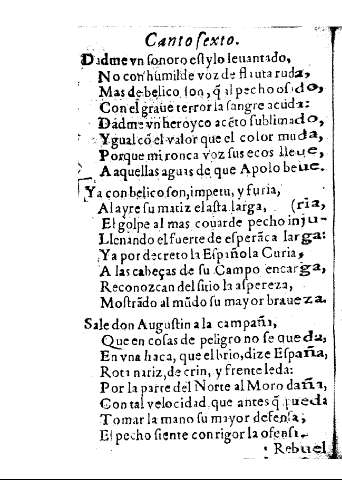 Canto sexto.
Dadme vn sonoro estylo leuantado,
No con humilde voz de flauta ruda,
Mas de belico son, q̃ al pecho osado,
Con el graue terror la sangre acuda:
Dadme vn heroyco acẽto sublimado,
Ygual cõ el valor que el color muda,
Porque mi ronca voz sus ecos lleue,
A aquellas aguas de que Apolo beue.
Ya con belico son, impetu, y furia,
Al ayre su matiz el asta larga, (ria,
El golpe al mas couarde pecho inju-
Llenando el fuerte de esperãca larga:
Ya por decreto la Española Curia,
A las cabeças de su Campo encarga,
Reconozcan del sitio la aspereza,
Mostrãdo al mũdo su mayor braueza.
Sale don Augustin a la campaña,
Que en cosas de peligro no se queda,
En vna haca, que el brio, dize España,
Roti nariz, de crin, y frente leda:
Por la parte del Norte al Moro daña,
Con tal velocidad que antes q̃ pueda
Tomar la mano su mayor defensa,
El pecho siente con rigor la ofensa.
Rebuel